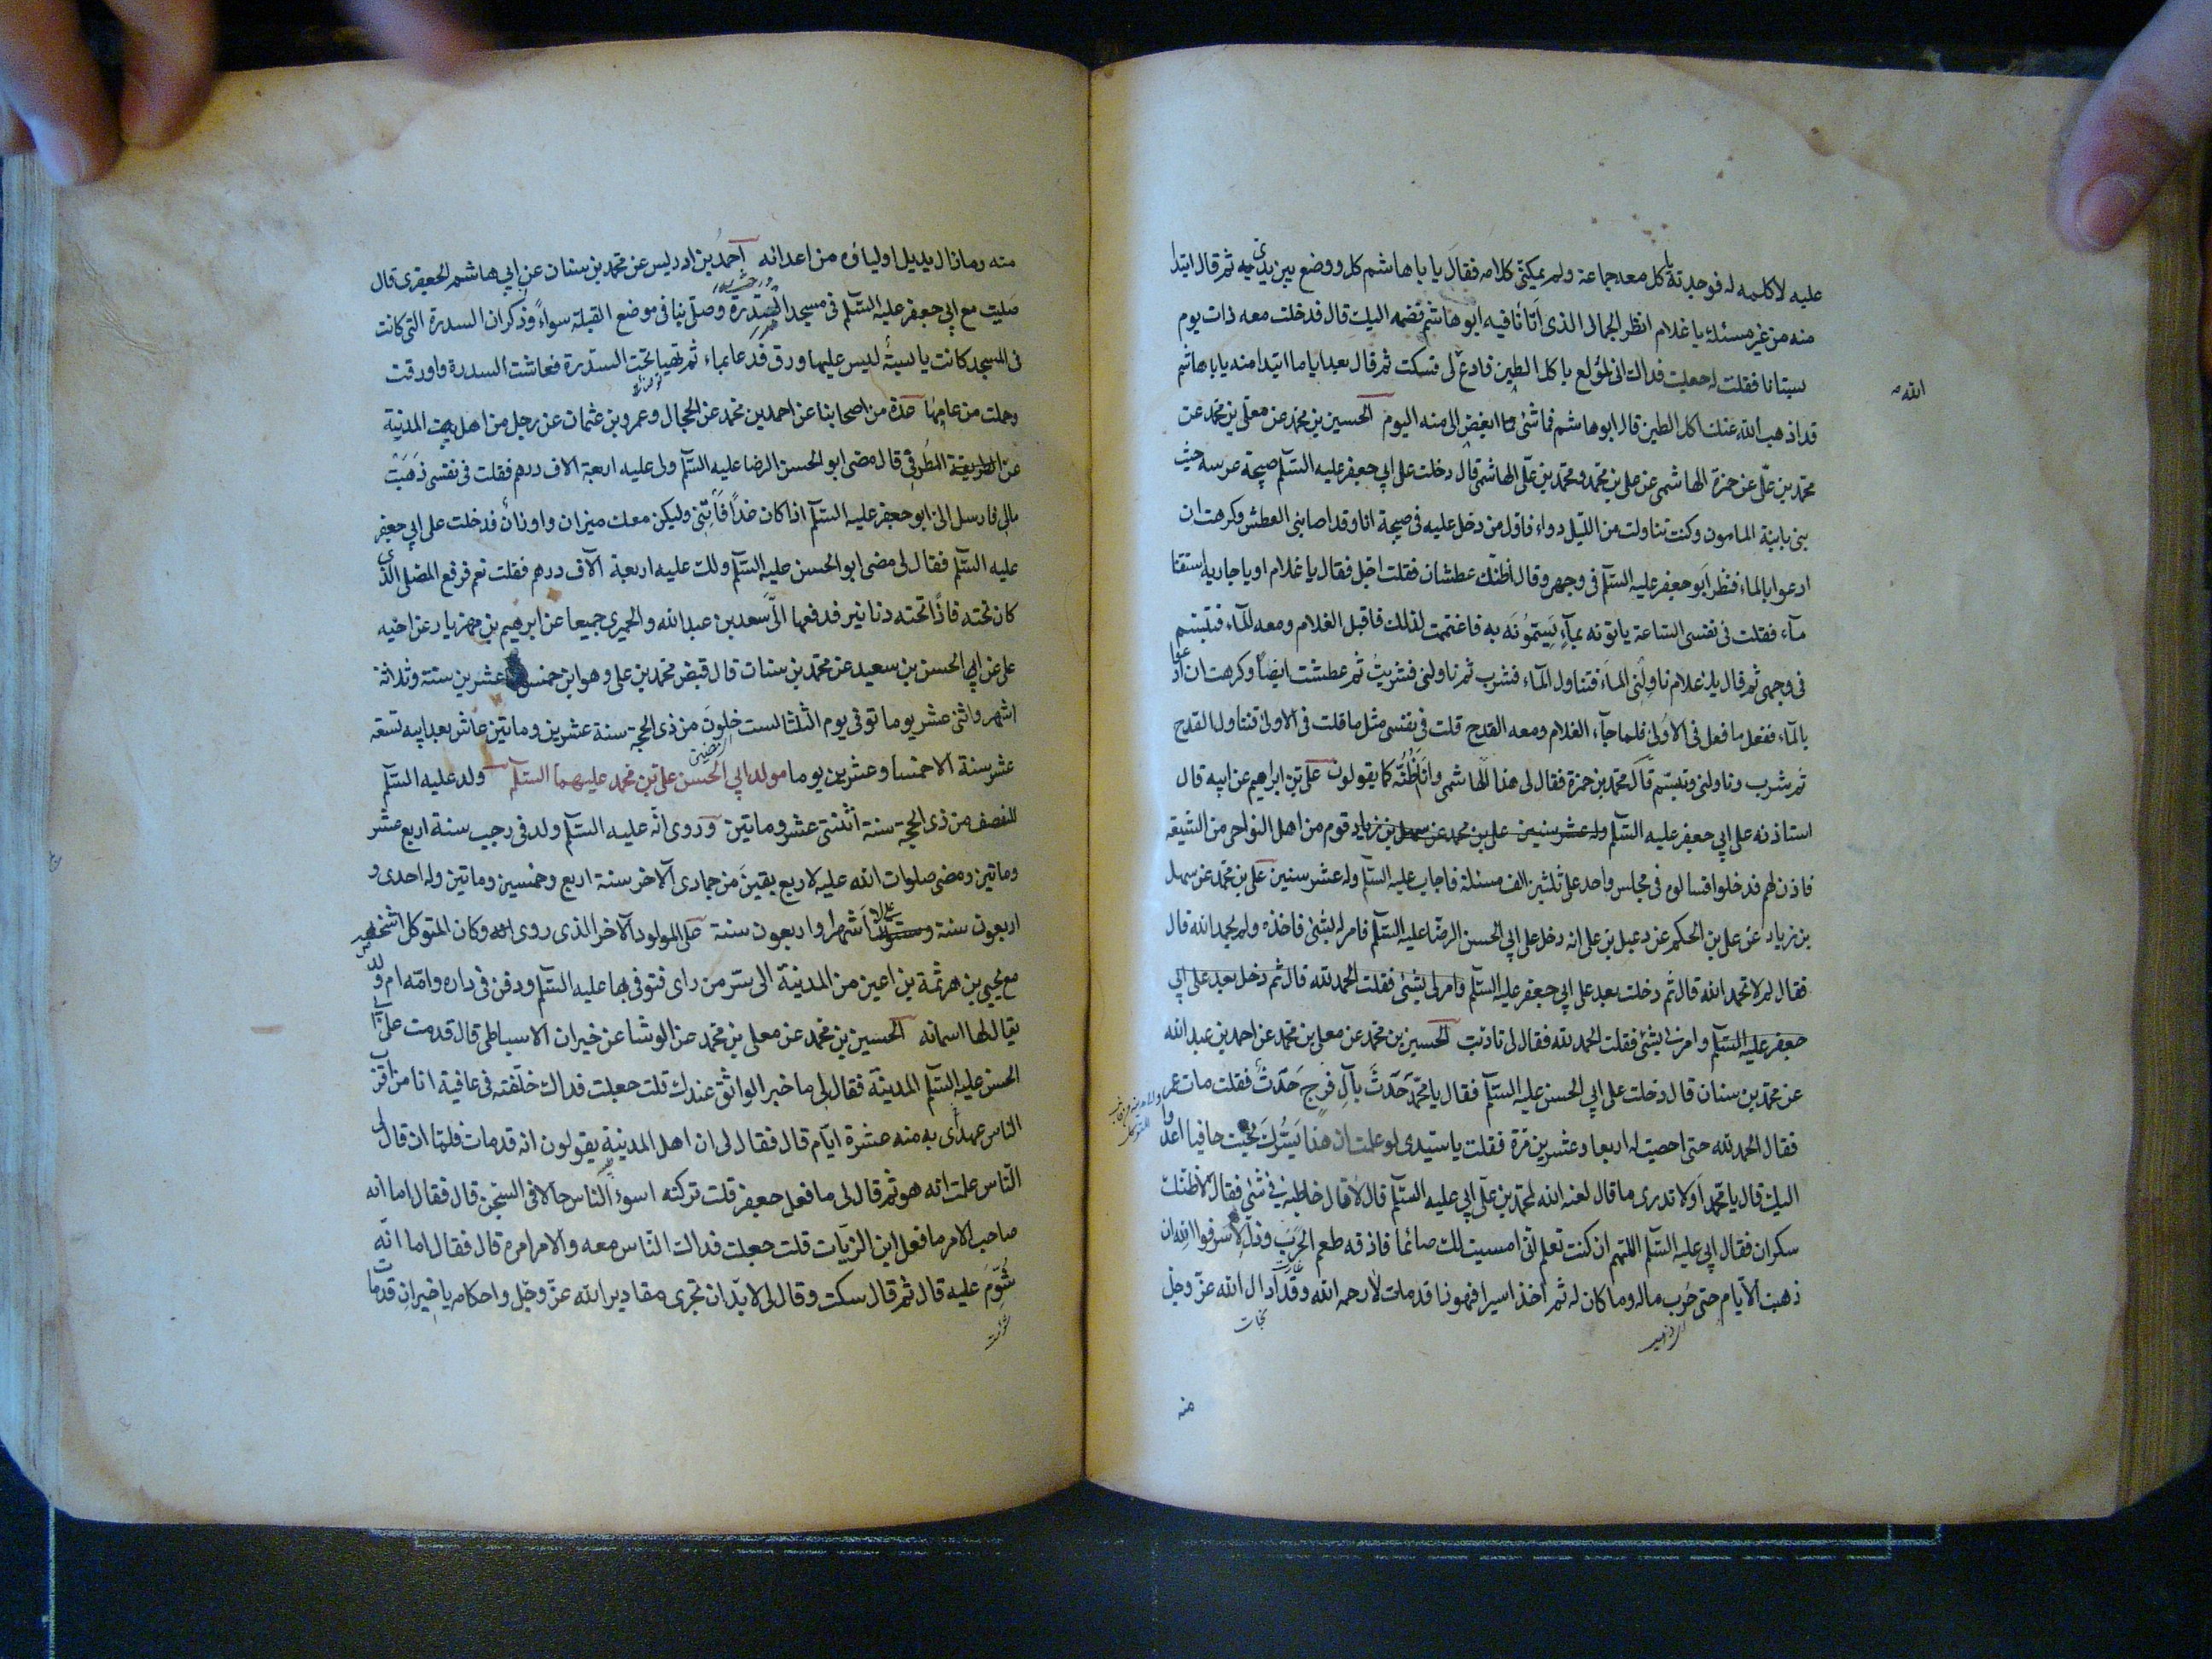 عليه لاكلمه له فوجدته ياكل معه جماعة ولم يمكنى كلامه فقال يا با هاشم كل ووضع بين يدى ثم قال ابتدا
منه من غير مسئلة يا غلام انظر الجمال الذى اتانا به ابو هاشم فضمه اليك قال فدخلت معه ذات يوم
بستانا فقلت له جعلت فداك انى لمولع باكل الطين فادع لى فسكت ثم قال بعد ايام ابتدا منه يا با هاشم
الله
قد اذهب الله عنك اكل الطين قال ابو هاشم فما شئ ابغض الى منه اليوم الحسين بن محمد عن معلى بن محمد عن
محمد بن على عن حمزة الهاشمى عن على بن محمد و محمد بن على الهاشمى قال دخلت على ابى جعفر عليه السلم صبيحة عرسه حيث
بنى بابنة المامون وكنت تناولت من الليل دواء فاول من دخل عليه فى صبيحة انا وقد اصابنى العطش وكرهت ان
ادعوا بالماء فنظر ابو جعفر عليه السلم فى وجهى وقال اظنك عطشان فقلت اجل فقال يا غلام او يا جارية اسقنا
مآء فقلت فى نفسى الساعة ياتونه بمآء يسمونه به فاغتممت لذلك فاقبل الغلام ومعه المآء فتبسم
فى وجهى ثم قال يا غلام ناولنى المآء فتناول المآء فشرب ثم ناولنى فشربت ثم عطشت ايضا وكرهت ان ادعوا
بالمآء ففعل ما فعل فى الاولى فلما جآء الغلام ومعه القدح قلت فى نفسى مثل ما قلت فى الاولى فتناول القدح
ثم شرب وناولنى وتبسم قال محمد بن حمزة فقال لى هذا الهاشمى وانا اظنه كما يقولون على بن ابراهيم عن ابيه قال
استاذنه على ابى جعفر عليه السلم وله عشر سنين على بن محمد عن سهل بن زياد قوم من اهل النواحى من الشيعة
فاذن لهم فدخلوا فسالوه فى مجلس واحد على ثلثين الف مسئلة فاجاب عليه السلم وله عشر سنين على بن محمد عن سهل
بن زياد عن على بن الحكم عن دعبل بن على انه دخل على ابى الحسن الرضا عليه السلم فامر له بشئ فاخذه ولم يحمد الله قال
فقال لم لا تحمد الله قال ثم دخلت بعد على ابى جعفر عليه السلم وامر لى بشئ فقلت الحمد لله قال ثم دخل بعد على ابى
جعفر عليه السلم وامر له بشئ فقلت الحمد لله فقال لى تادبت الحسين بن محمد عن معلى بن محمد عن احمد بن عبد الله
عن محمد بن سنان قال دخلت على ابى الحسن عليه السلم فقال يا محمد حدث بآل فرج حدث فقلت مات عمر
فقال الحمد لله حتى احصيت له اربعا وعشرين مرة فقلت يا سيدى لو علمت ان هذا يسرك لجئت حافيا اعدوا
اليك قال يا محمد اولا تدرى ما قال لعنه الله لمحمد بن على ابى عليه السلم قال لا قال خاطبه فى شئ فقال اظنك
سكران فقال ابى عليه السلم اللهم ان كنت تعلم انى امسيت لك صائما فاذقه طعم الحرب وذل الاسر فوا الله ان
ذهبت الايام حتى حرب ماله وما كان له ثم اخذ اسيرا فهو ذا قد مات لا رحمه الله وقد ادال الله عز وجل
منه
منه وما زال يديل اولياؤه من اعدائه احمد بن ادريس عن محمد بن سنان عن ابى هاشم الجعفرى قال
صليت مع ابى جعفر عليه السلم فى مسجد السدرة وصلى بنا فى موضع القبلة سواء وذكر ان السدرة التى كانت
فى المسجد كانت يابسة ليس عليها ورق فدعا بماء ثم تهيا تحت السدرة فعاشت السدرة واورقت
وحملت من عامها عدة من اصحابنا عن احمد بن محمد عن الحجال وعمرو بن عثمان عن رجل من اهل المدينة
عن المطرفى قال مضى ابو الحسن الرضا عليه السلم ولى عليه اربعة الاف درهم فقلت فى نفسى ذهبت
مالى فارسل الى ابو جعفر عليه السلم اذا كان غدا فاتنى وليكن معك ميزان واوزان فدخلت على ابى جعفر
عليه السلم فقال لى مضى ابو الحسن عليه السلم ولك عليه اربعة آلاف درهم فقلت نعم فرفع المصلى الذى
كان تحته فاذا تحته دنانير فدفعها الى سعد بن عبد الله والحميرى جميعا عن ابرهيم بن مهزيار عن اخيه
على عن الحسن بن سعيد عن محمد بن سنان قال قبض محمد بن على وهو ابن خمس وعشرين سنة وثلاثة
اشهر واثنى عشر يوما توفى يوم الثلثا لست خلون من ذى الحجة سنة عشرين وماتين عاش بعد ابيه تسعة
عشر سنة الا خمسا وعشرين يوما مولد ابى الحسن على بن محمد عليهما السلم ولد عليه السلم
للنصف من ذى الحجة سنة اثنتى عشر وماتين وروى انه عليه السلم ولد فى رجب سنة اربع عشر
وماتين ومضى صلوات الله عليه لاربع بقين من جمادى الآخر سنة اربع وخمسين وماتين وله احدى و
اربعون سنة وستة اشهر او اربعون سنة على المولود الآخر الذى روى وكان المتوكل اشخصه
مع يحيى بن هرثمة بن اعين من المدينة الى سر من راى فتوفى بها عليه السلم ودفن فى داره وامه ام ولد
يقال لها اسمانه الحسين بن محمد عن معلى بن محمد عن الوشا عن خيران الاسباطى قال قدمت على ابى
الحسن عليه السلم المدينة فقال لى ما خبر الواثق عندك قلت جعلت فداك خلفته فى عافية انا من اقرب
الناس عهدا به منه عشرة ايام قال فقال لى ان اهل المدينة يقولون انه قد مات فلما ان قال لى
الناس علمت انه هو ثم قال لى ما فعل جعفر قلت تركته اسوء الناس حالا فى السجن قال فقال اما انه
صاحب الامر ما فعل ابن الزيات قلت جعلت فداك الناس معه والامر امره قال فقال اما انه
شوم عليه قال ثم قال سكت وقال لى لا بد ان تجرى مقادير الله عز وجل واحكامه يا خيران قد مات